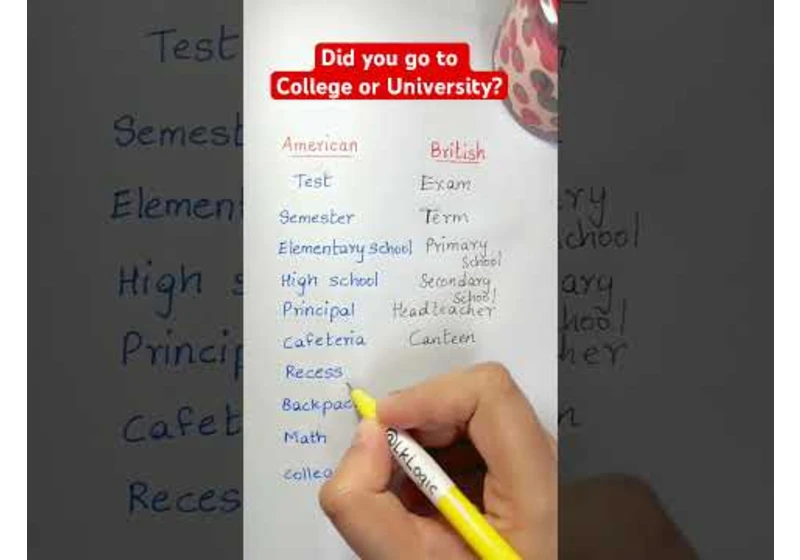 Did you go to
College or University?
American British
Test Exam
Semester Term
Elementary school Primary
School
High school Secondary
School
Principal Headteacher
Cafeteria Canteen
Recess
Backpac
Math
colleg
@LkLogic
Test
Semest
Elemen
High s
Princip
Cafet
Reces
ry
chool
ary
hool
her
n